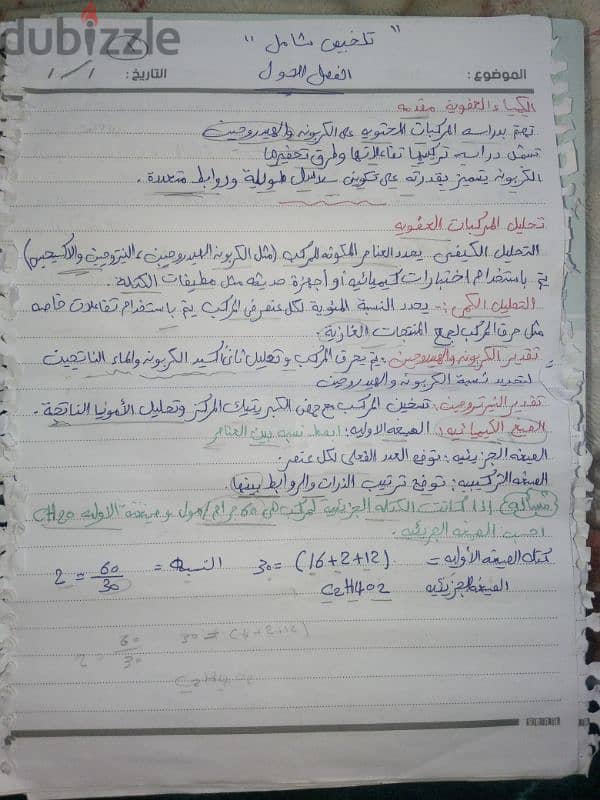 dubizzle
" تلخيص شامل "
الموضوع : الفصل الاول التاريخ : / ١ / ١
الكيمياء العضوية مقدمه
تهتم بدراسه المركبات المحتويه على الكربون والهيدروجين
تشمل دراسه تركيبها تفاعلاتها وطرق تحضيرها
الكربون يتميز بقدرته على تكوين سلاسل طويلة وروابط متعددة .
تحليل المركبات العضويه
التحليل الكيفي يحدد العناصر المكونه للمركب (مثل الكربون الهيدروجين ، النيتروجين والأكسجين)
يتم باستخدام اختبارات كيميائيه أو أجهزة حديثه مثل مطيافات الكتله .
التحليل الكمي :- يحدد النسبة المئوية لكل عنصر في المركب يتم باستخدام تفاعلات خاصه
مثل حرق المركب لجمع المنتجات الغازية .
تقدير الكربون والهيدروجين : يتم حرق المركب وتحليل ثاني اكسيد الكربون والماء الناتجين
لتحديد نسبة الكربون والهيدروجين
تقدير النيتروجين : تسخين المركب مع حمض الكبريتيك المركز وتحليل الأمونيا الناتجة .
الصيغ الكيميائيه : الصيغه الاوليه : ابسط نسبه بين العناصر
الصيغه الجزيئيه : توضح العدد الفعلي لكل عنصر .
الصيغه التركيبيه : توضح ترتيب الذرات والروابط بينها .
مسألة إذا كانت الكتله الجزيئية لمركب هي 60 جرام/مول وصيغته الاوليه CH20
احسب الصيغه الجزيئيه .
كتلة الصيغه الأوليه = (16+2+12) = 30 النسبة = 60/30 = 2
الصيغه الجزيئيه C2H402
30 = 60/30 = 2